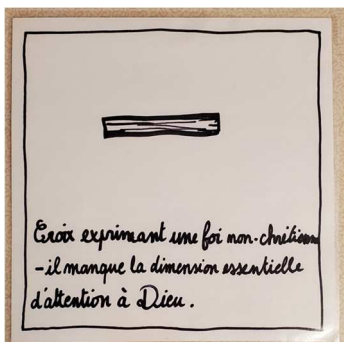 Croix exprimant une foi non-chrétienne
-il manque la dimension essentielle
d'attention à Dieu.